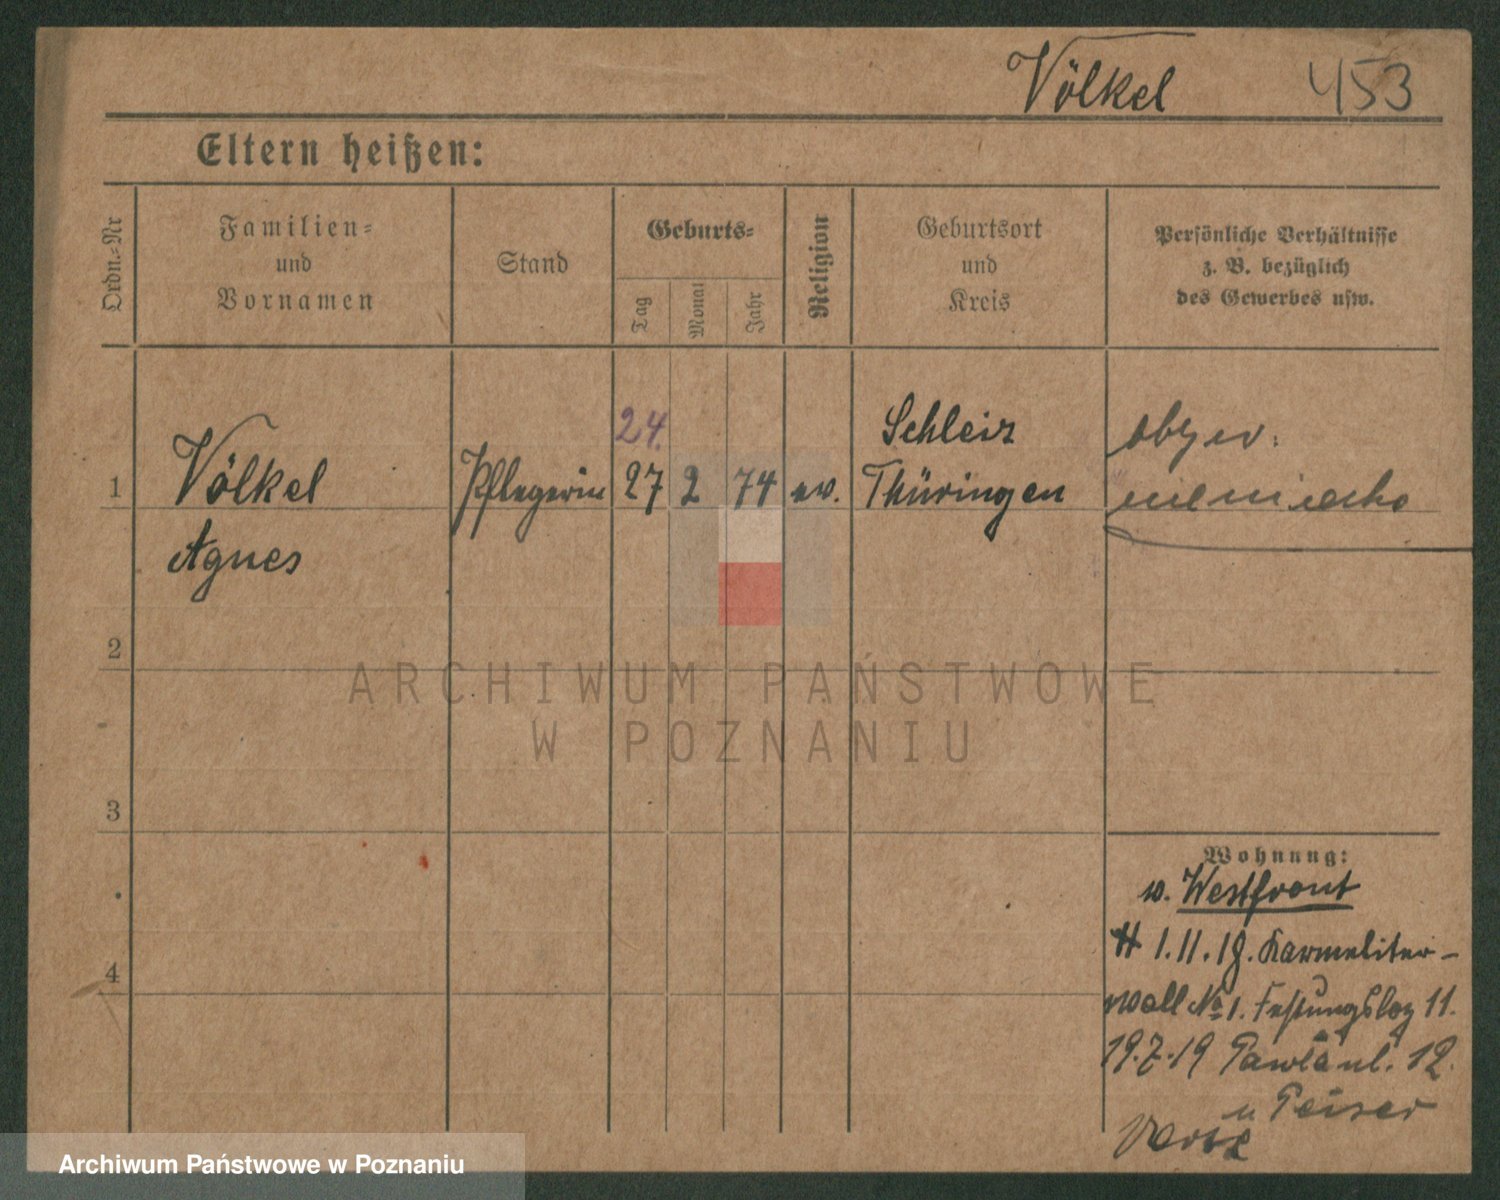 Völkel 453
Eltern heißen:
Ordn.-Nr
Familien-
und
Vornamen
Stand
Geburts-
Tag
Monat
Jahr
Religion
Geburtsort
und
Kreis
Persönliche Verhältnisse
z. B. bezüglich
des Gewerbes usw.
24.
1 Völkel Pflegerin 27 2 74 ev.
Agnes
Schleiz
Thüringen
obyw.
niemiecko
2
3
4
ARCHIWUM PAŃSTWOWE
W POZNANIU
Wohnung:
w. Westfront
1.11.19. Karmeliter-
wall No 1. Festungslaz 11.
19.7.19 Pawła ul. 12.
u Peiser
Archiwum Państwowe w Poznaniu